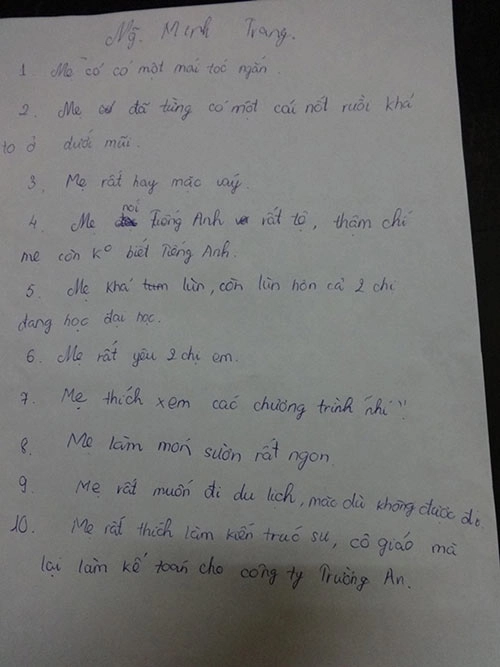 Ng. Minh Trang.
1. Mẹ có có một mái tóc ngắn.
2. Mẹ đã từng có một cái nốt ruồi khá
to ở dưới mũi.
3. Mẹ rất hay mặc váy.
4. Mẹ nói Tiếng Anh rất tệ, thậm chí
mẹ còn k° biết Tiếng Anh.
5. Mẹ khá lùn, còn lùn hơn cả 2 chị
đang học đại học.
6. Mẹ rất yêu 2 chị em.
7. Mẹ thích xem các chương trình "nhí".
8. Mẹ làm món sườn rất ngon.
9. Mẹ rất muốn đi du lịch, mặc dù không được đi.
10. Mẹ rất thích làm kiến trúc sư, cô giáo mà
lại làm kế toán cho công ty Trường An.